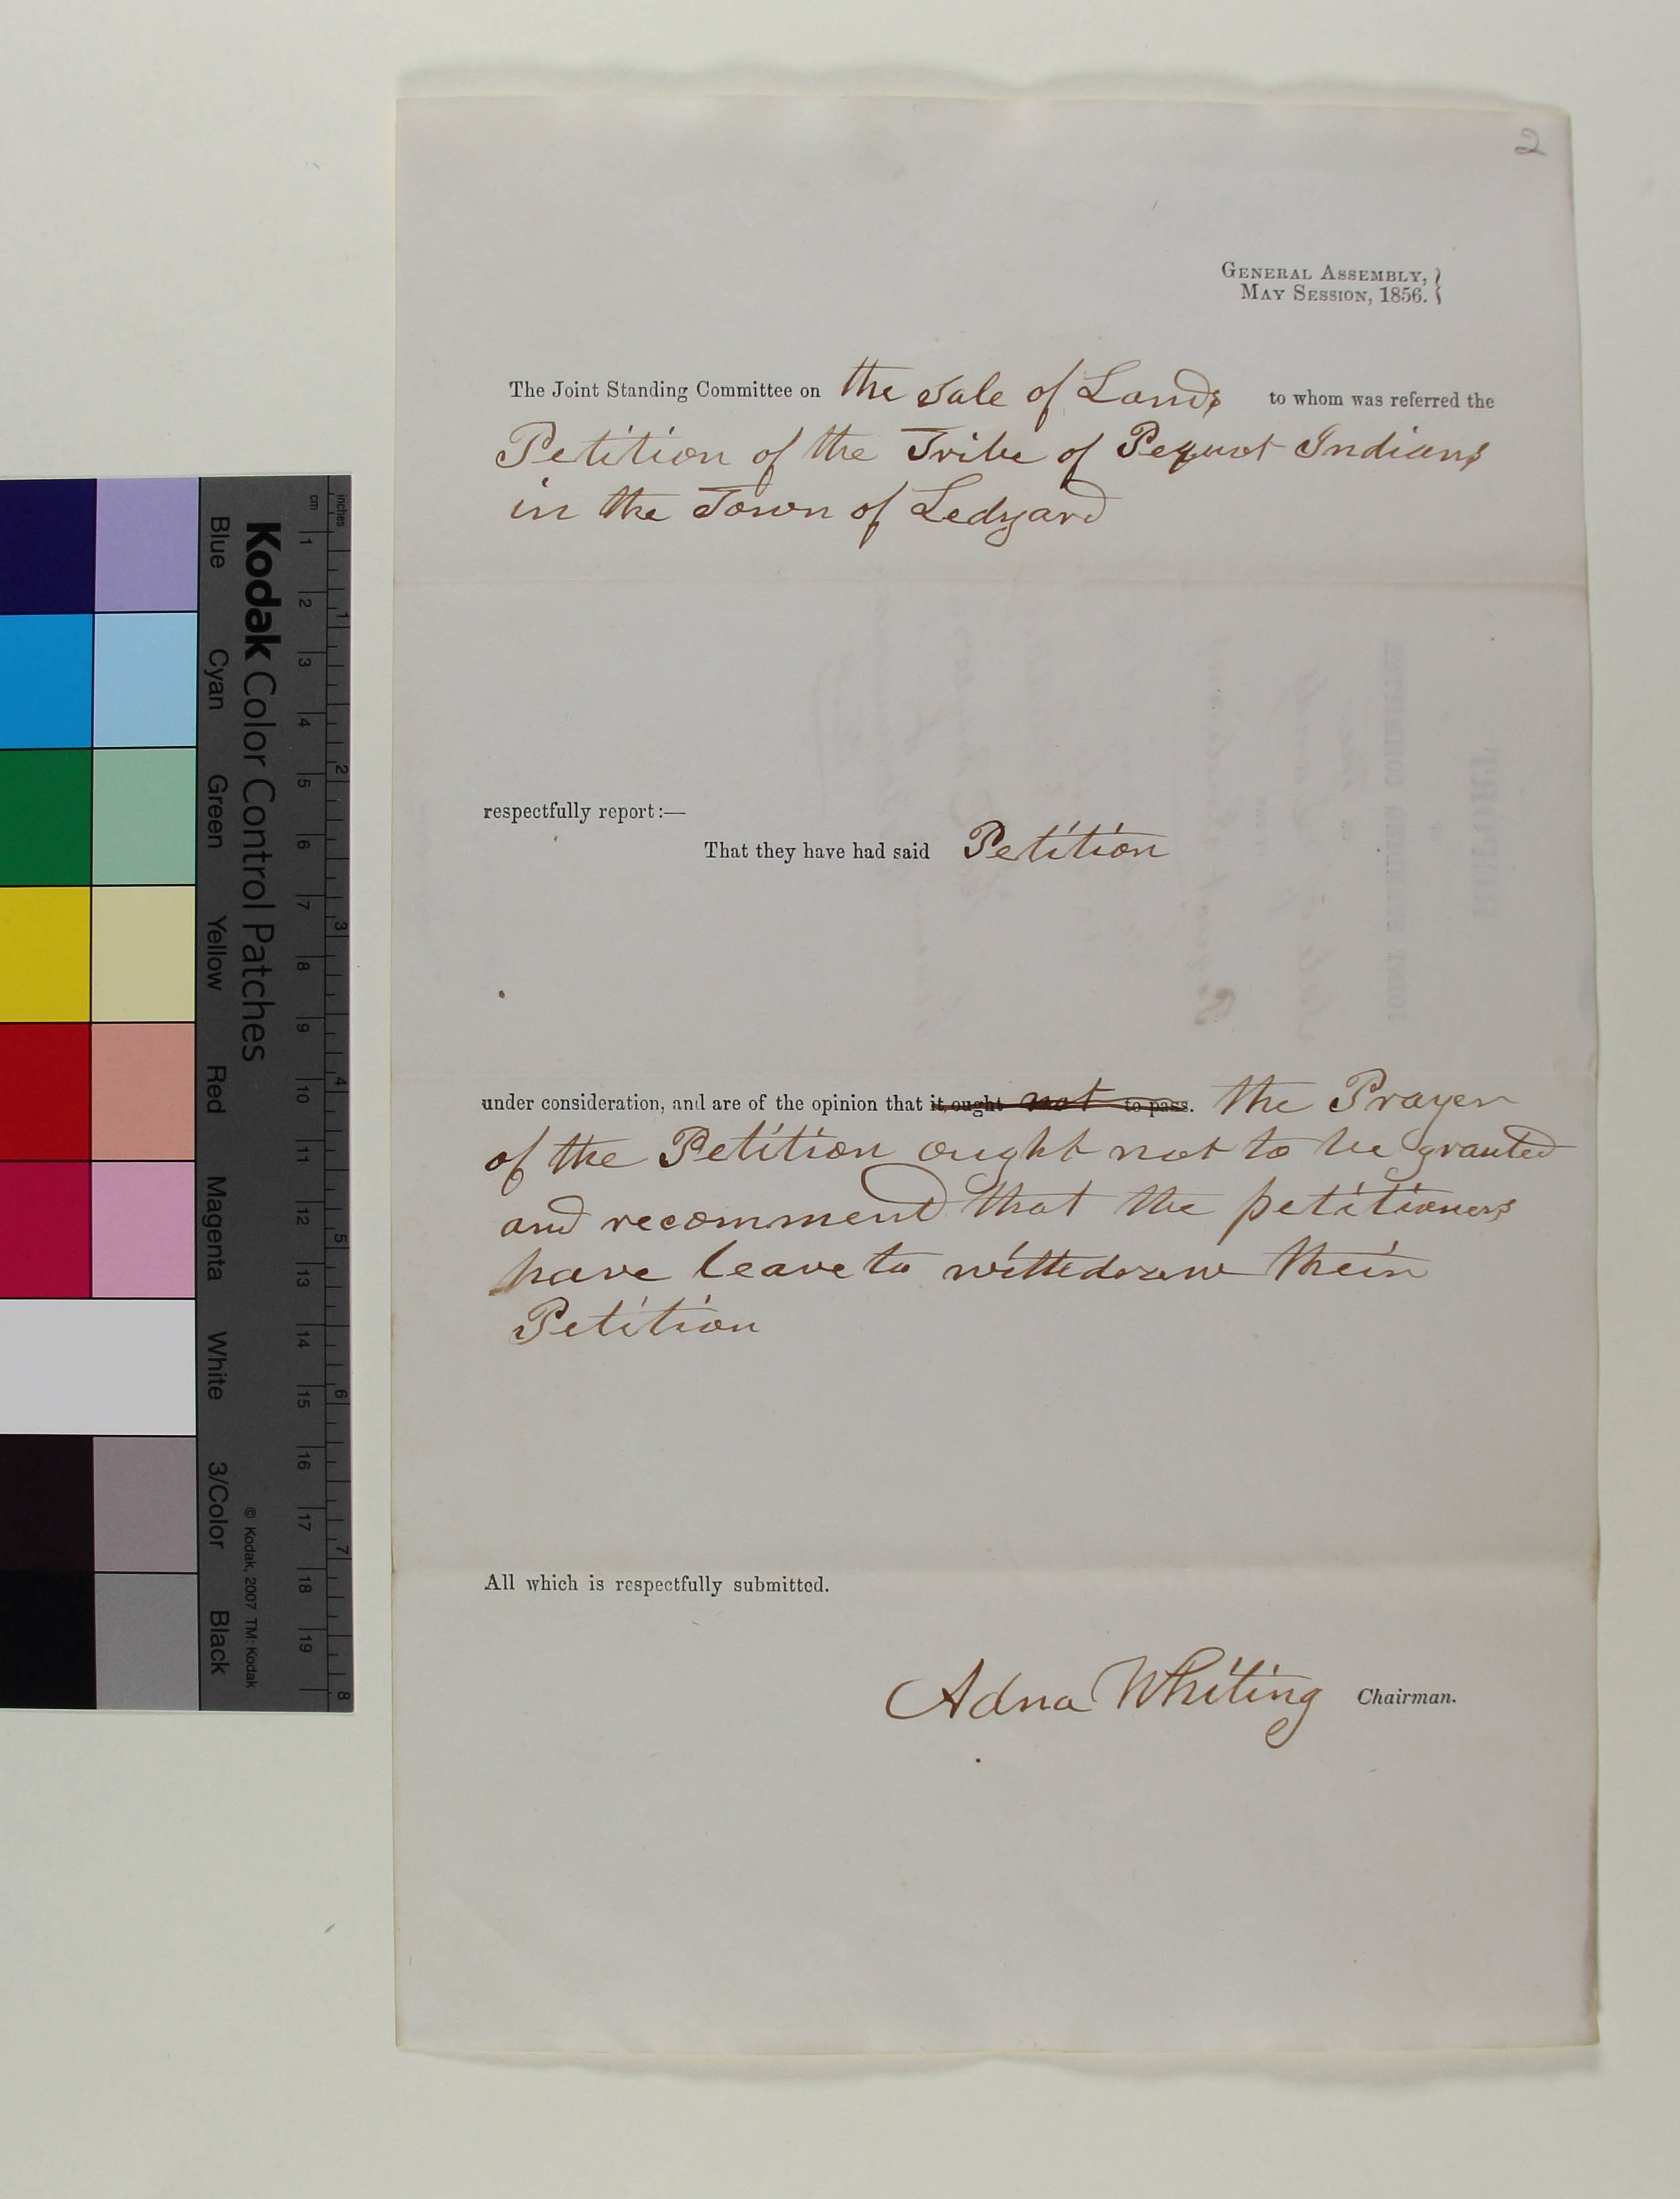 2
GENERAL ASSEMBLY,
MAY SESSION, 1856.
The Joint Standing Committee on the Sale of Lands to whom was referred the
Petition of the Tribe of Pequot Indians
in the Town of Ledyard
respectfully report:—
That they have had said Petition
under consideration, and are of the opinion that it ought not to pass. the Prayer
of the Petition ought not to be granted
and recommend that the petitioners
have leave to withdraw their
Petition
All which is respectfully submitted.
Adna Whiting Chairman.
inches
cm
1 2 3 4 5 6 7 8
1 2 3 4 5 6 7 8 9 10 11 12 13 14 15 16 17 18 19
Kodak Color Control Patches
© Kodak, 2007 TM: Kodak
Blue Cyan Green Yellow Red Magenta White 3/Color Black